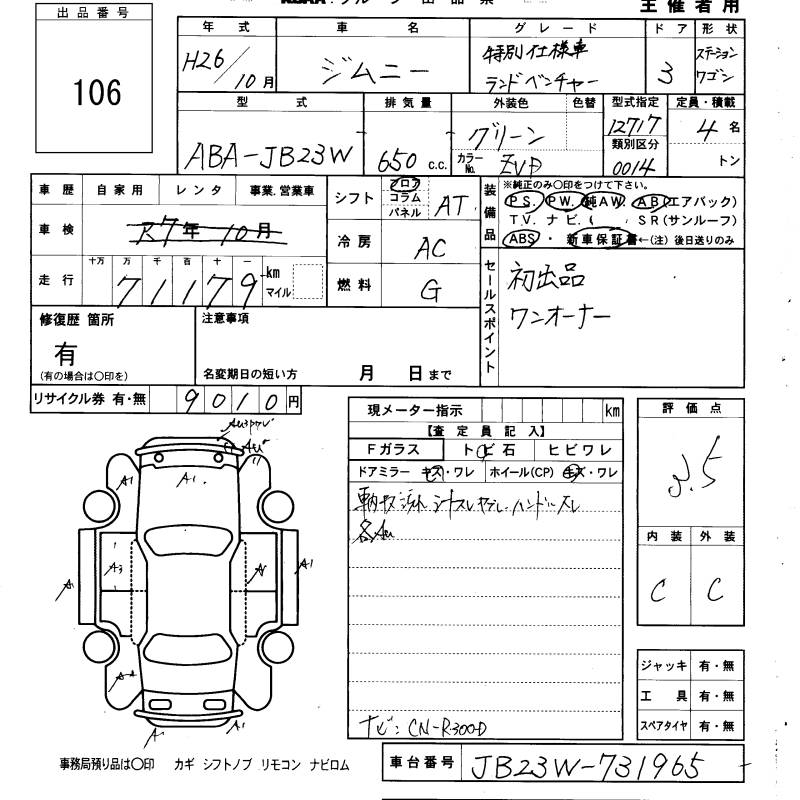 出品番号
106
主催者用
年式 車名 グレード ドア 形状
H26/10月 ジムニー 特別仕様車 ランドベンチャー 3 ステーション ワゴン
型式 排気量 外装色 色替 型式指定 定員・積載
ABA-JB23W 650 c.c. グリーン 12717 4名
カラーNo. ZVP 類別区分 0014 トン
車歴 自家用 レンタ 事業.営業車
車検 R7年10月
走行 十万 万 千 百 十 一
71179 km マイル
シフト フロア コラム パネル AT
冷房 AC
燃料 G
装備品
※純正のみ〇印をつけて下さい。
P.S. P.W. 純A.W. A.B(エアバック)
T.V. ナビ.( S R(サンルーフ)
ABS・ 新車保証書←(注)後日送りのみ
セールスポイント
初出品
ワンオーナー
修復歴 箇所
有
(有の場合は〇印を)
注意事項
名変期日の短い方 月 日まで
リサイクル券 有・無 9010円
現メーター指示 km
【査定員記入】
Fガラス トビ石 ヒビワレ
ドアミラー キズ・ワレ ホイール(CP) キズ・ワレ
各AU
ナビ: CN-R300D
評価点
3.5
内装 外装
C C
ジャッキ 有・無
工具 有・無
スペアタイヤ 有・無
A1
A1
A1
A3
A1
A1
A2
A1
事務局預り品は〇印 カギ シフトノブ リモコン ナビロム
車台番号 JB23W-731965